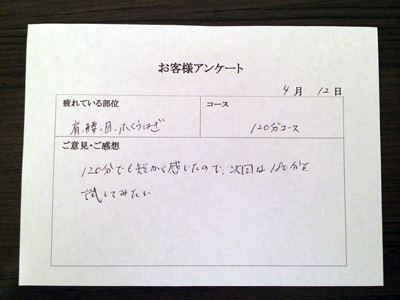 お客様アンケート
4月 12日
疲れている部位
コース
肩、腰、目、ふくらはぎ
120分コース
ご意見・ご感想
120分でも短かく感じたので、次回は180分を
試してみたい